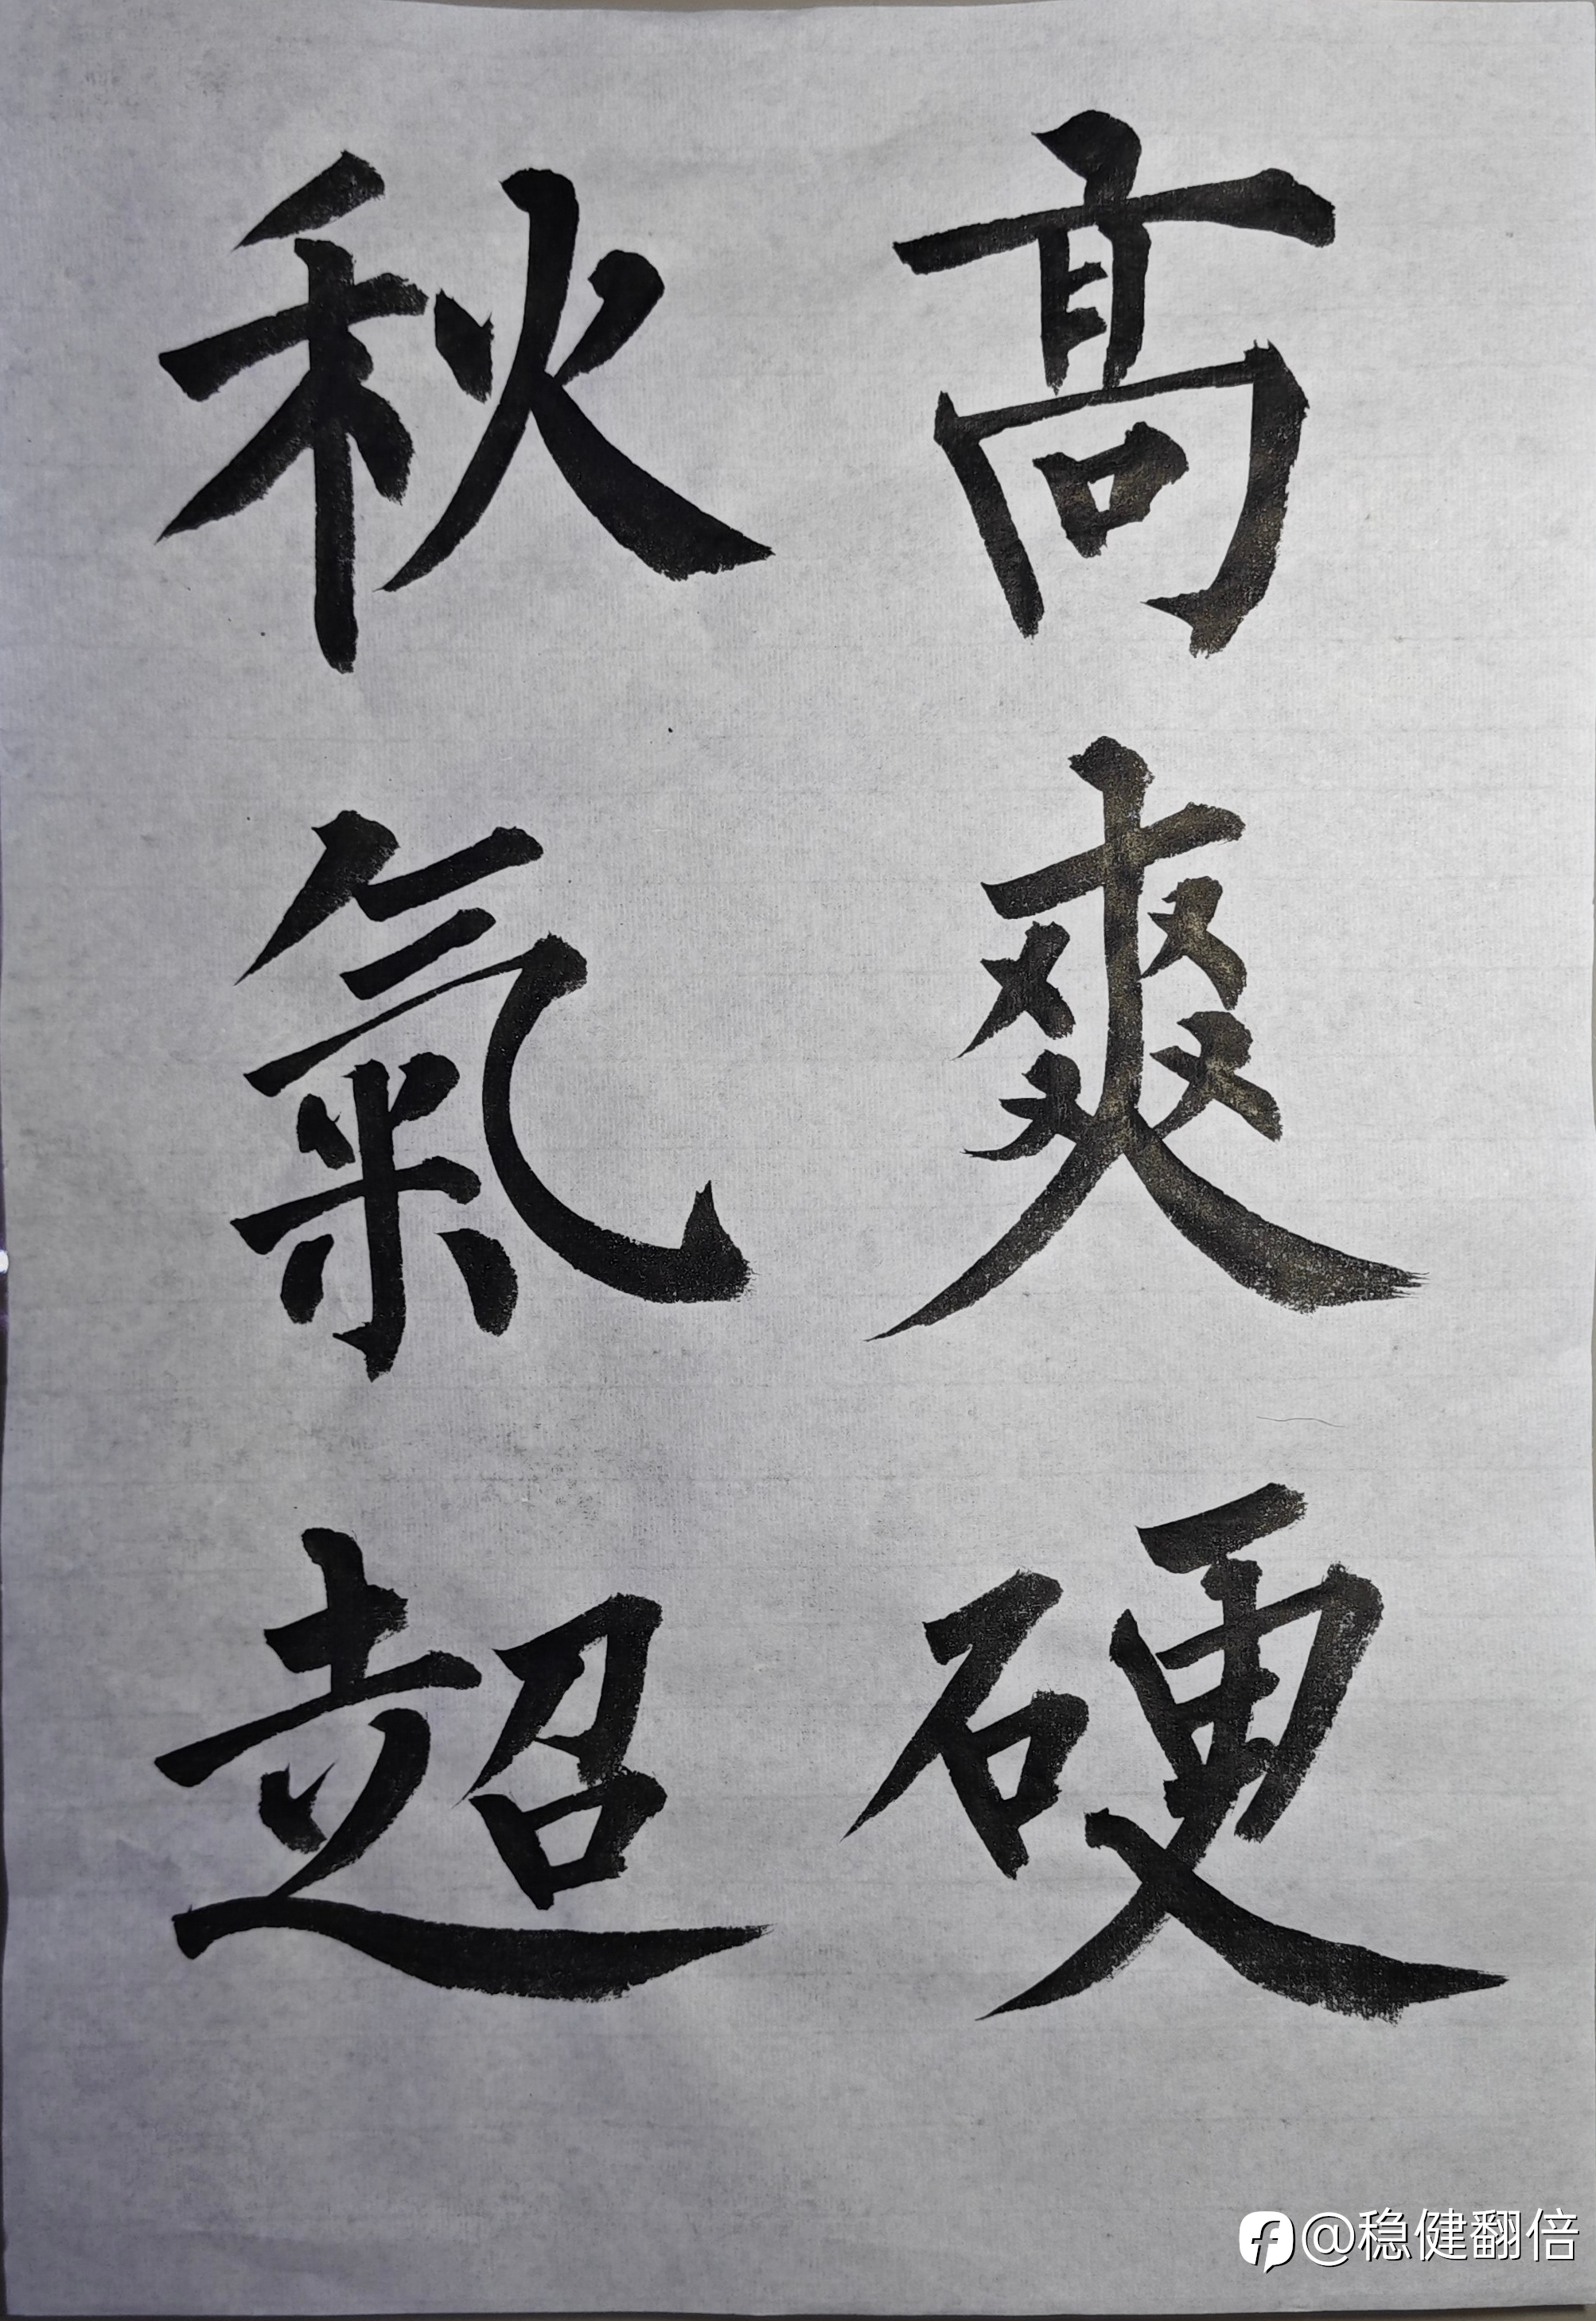 高爽硬
秋氣超
@稳健翻倍